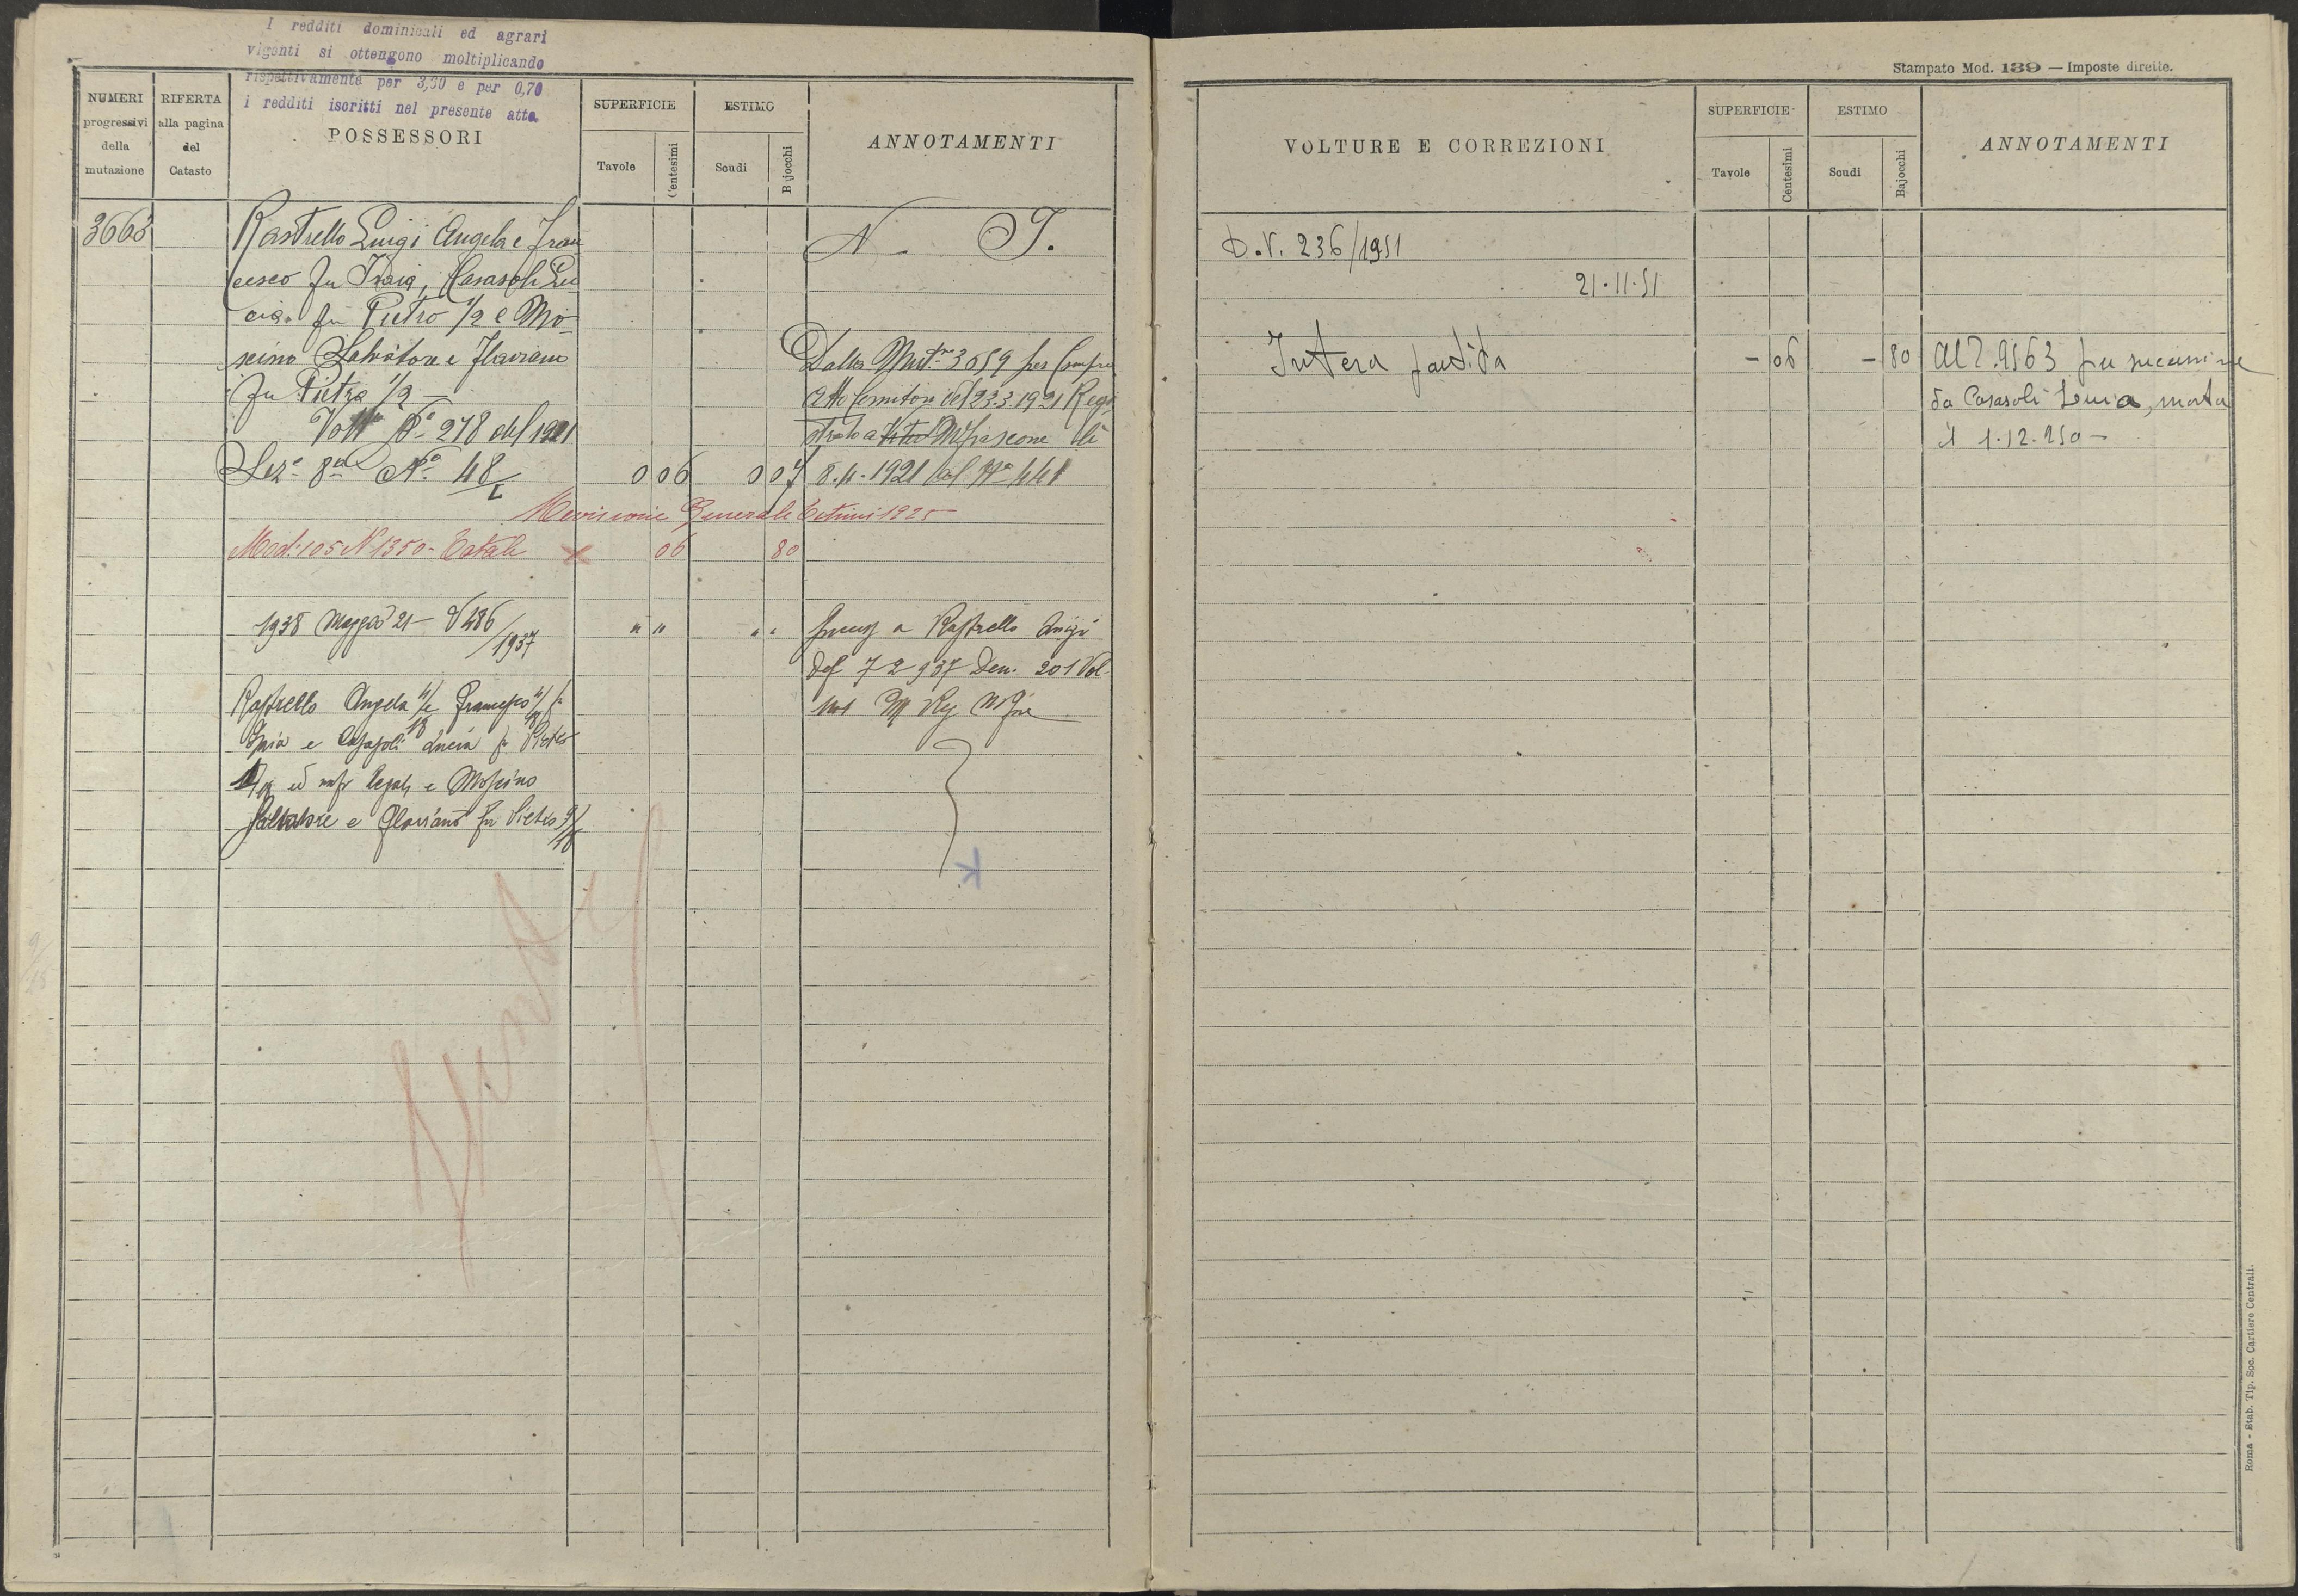 I redditi dominicali ed agrari
vigenti si ottengono moltiplicando
rispettivamente per 3,30 e per 0,70
i redditi iscritti nel presente atto.
NUMERI progressivi della mutazione
RIFERTA alla pagina del Catasto
POSSESSORI
SUPERFICIE
Tavole
Centesimi
ESTIMO
Scudi
Bajocchi
ANNOTAMENTI
3663
Rastrello Luigi Angela e Fran
cesco fu Isaia, Casasoli Lu
cia fu Pietro 1/2 e Mo
scino Salvatore e Flaviano
fu Pietro 1/2
Volt N° 278 del 1921
Sez° 8a N° 48
0 06 0 07
N T.
Dalla Mut.ne 3659 per Compra
Atto del 23.3.1921 Regi
strato a Mfiascone li
8.4.1921 al N° 441
Revisione Generale Estimi 1925
Mod. 105 N 1350 - Totale
06 80
1938 Maggio 21 - V 486/1937
" " " "
a Rastrello Luigi
7 2 937 Den. 201 Vol
Rastrello Angela e Francesco fu
Isaia e Casasoli Lucia fu Pietro
ed usufr legale e Moscino
Salvatore e Flaviano fu Pietro 9/18
Stampato Mod. 139 — Imposte dirette.
VOLTURE E CORREZIONI
SUPERFICIE
Tavole
Centesimi
ESTIMO
Scudi
Bajocchi
ANNOTAMENTI
D.V. 236/1951
21.11.51
Intera partita
- 06 - 80
Al 7.9563 per successione
da Casasoli Lucia, morta
il 1.12.950 -
Roma - Stab. Tip. Soc. Cartiere Centrali.